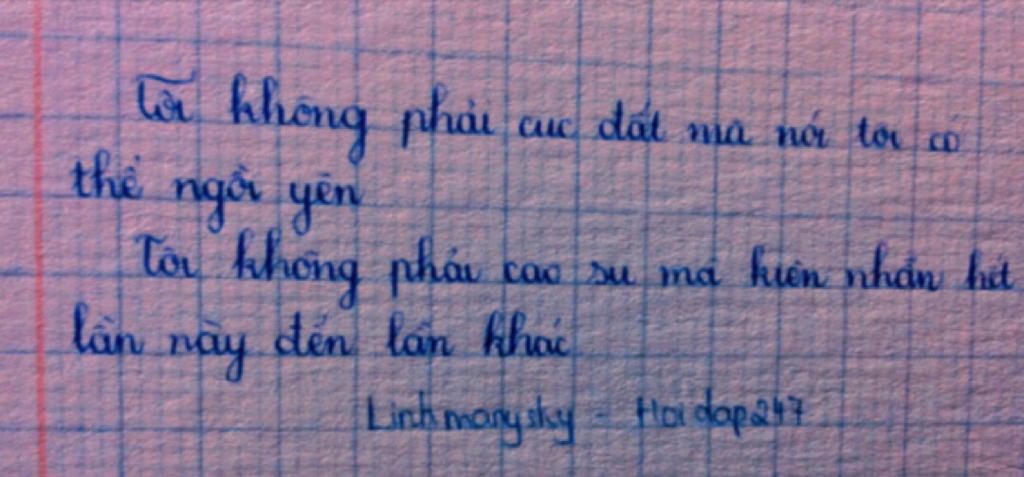 Tôi không phải cục đất mà nói tôi có
thể ngồi yên
Tôi không phải cao su mà kiên nhẫn hết
lần này đến lần khác
Linhmarysky - Hoidap247